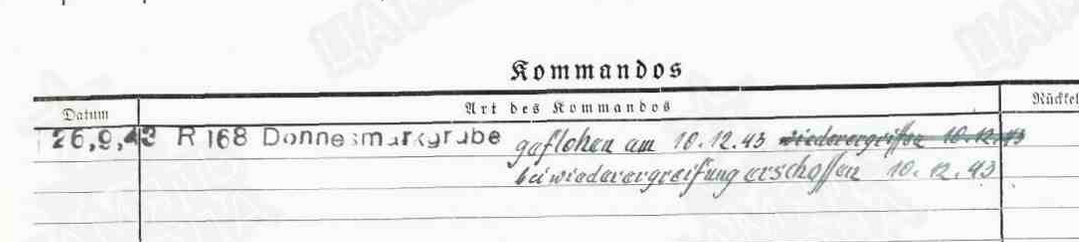 Kommandos
Datum Art des Kommandos
26.9.43 R 168 Donnesmarkgrube geflohen am 10.12.43 wiederergriffen 10.12.43
bei wiederergreifung erschossen 10.12.43